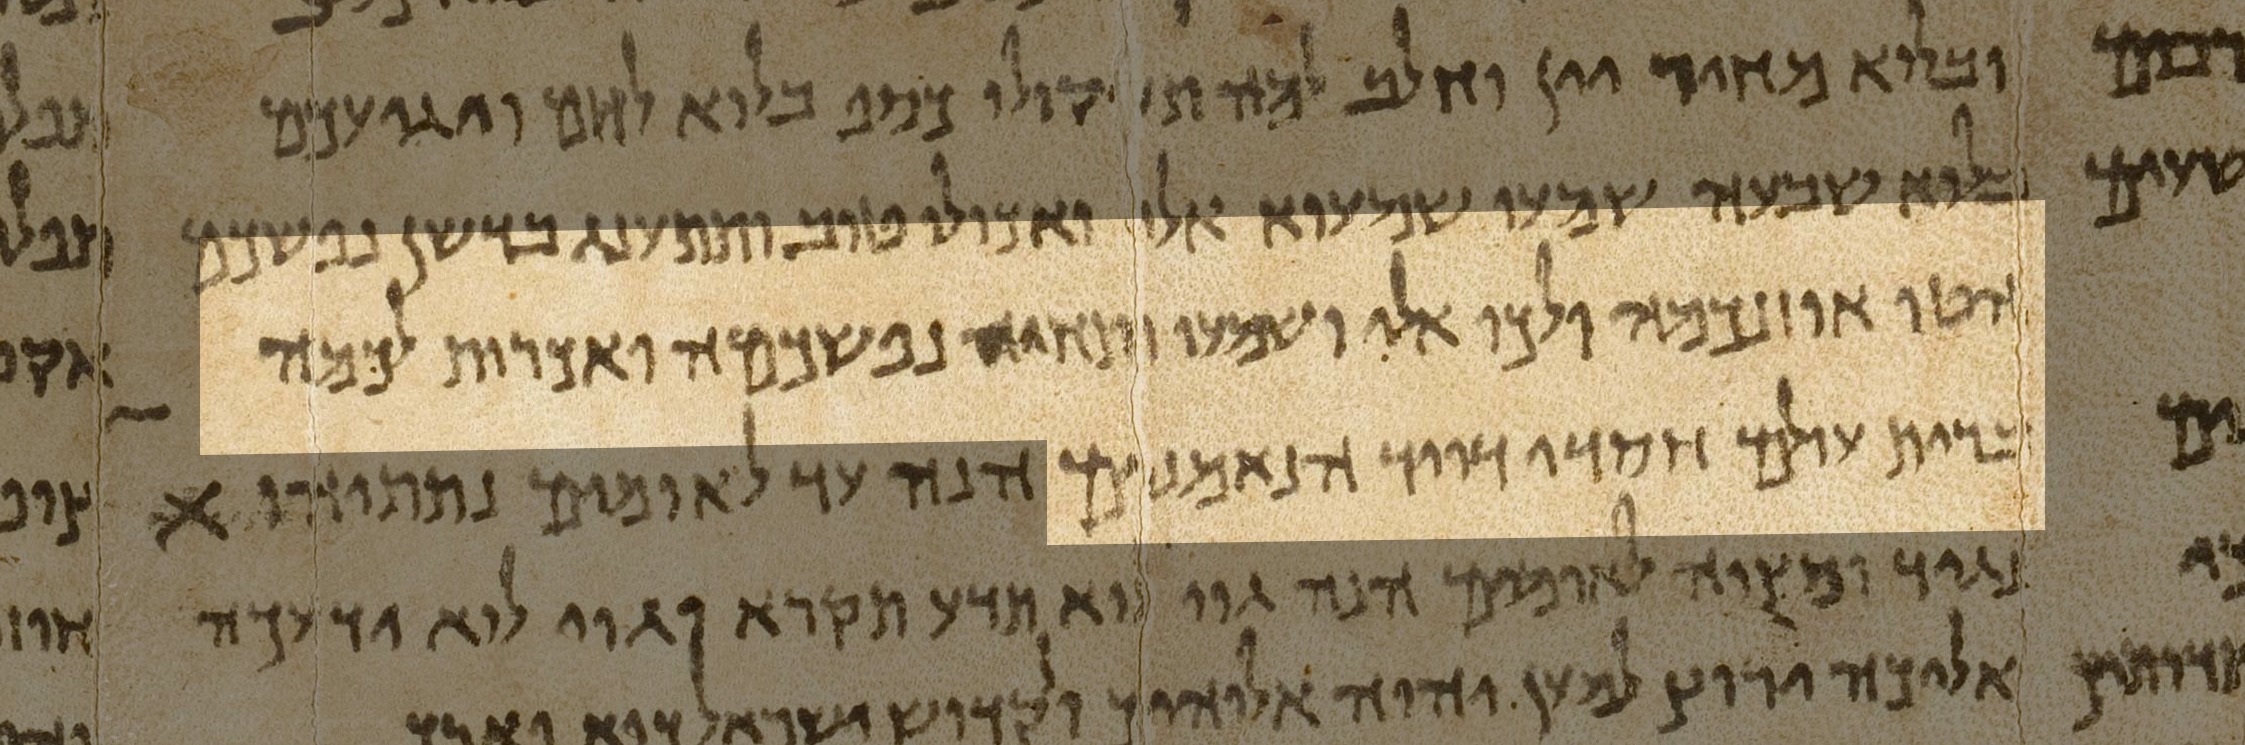 ובלוא מחיר יין וחלב למה תשקולו כסף בלוא לחם ויגיעכם
בלוא שבעה שמעו שמעוא אלי ואכולו טוב ותתענג בדשן נפשכם
הטו אוזנכמה ולכו אלי ושמעו ותחיה נפשכמה ואכרות לכמה
ברית עולם חסדי דויד הנאמנים הנה עד לאומים נתתיהו
נגיד ומצוה לאומים הנה גוי לוא תדע תקרא וגוי לוא ידעכה
אליכה ירוץ למען יהוה אלוהיך וקדוש ישראל כיא פארך